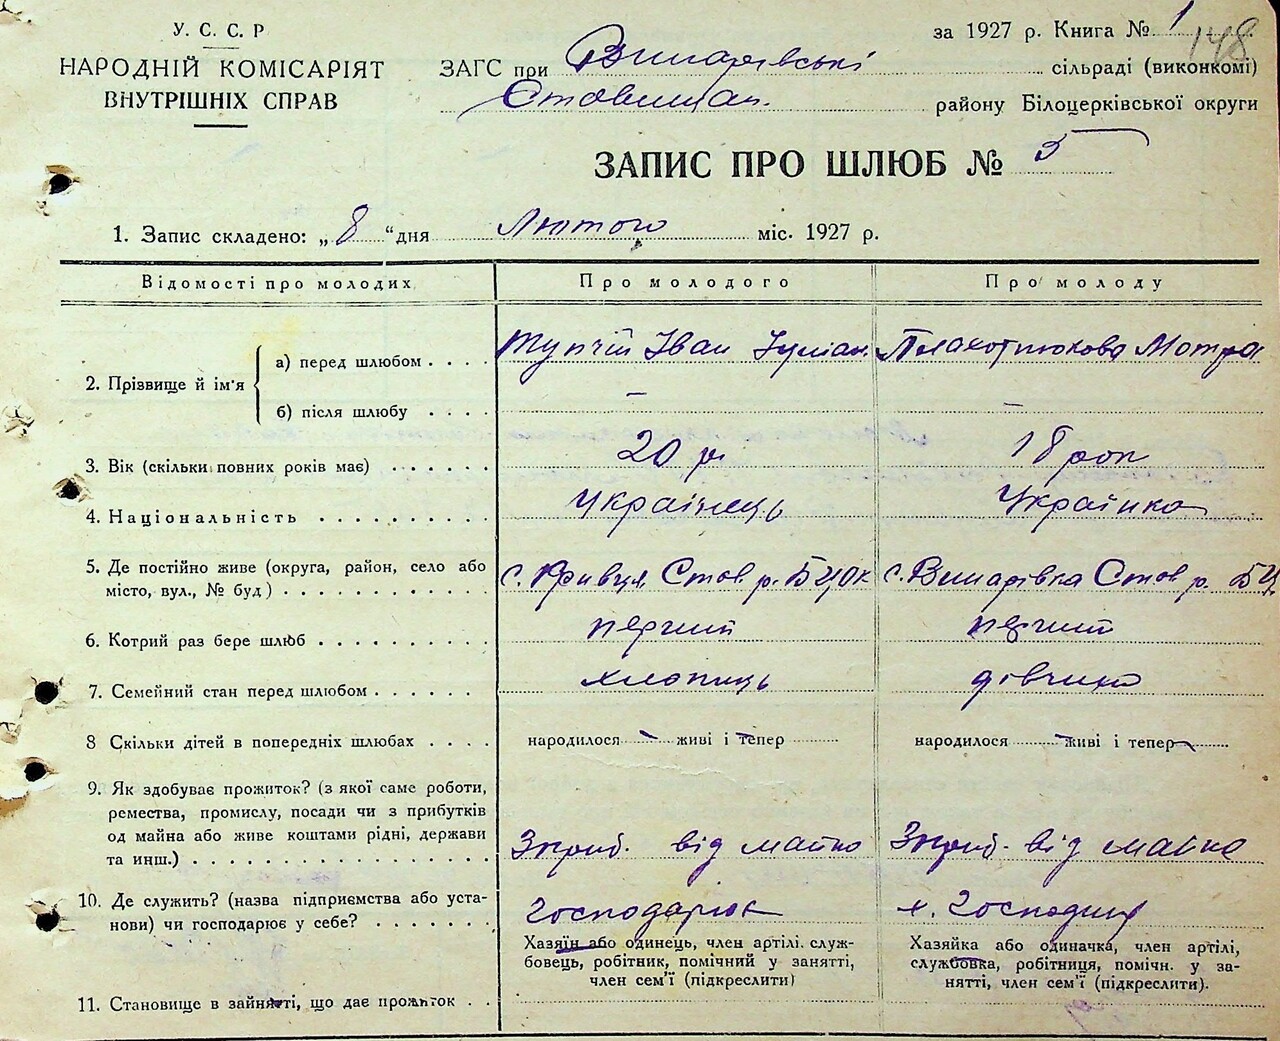 У. С. С. Р
НАРОДНІЙ КОМІСАРІЯТ
ВНУТРІШНІХ СПРАВ
за 1927 р. Книга № 1
148
ЗАГС при сільраді (виконкомі)
району Білоцерківської округи
ЗАПИС ПРО ШЛЮБ № 5
1. Запис складено: „8“ дня Лютого міс. 1927 р.
Відомості про молодих Про молодого Про молоду
2. Прізвище й ім'я
а) перед шлюбом . . . Іван Мотра
б) після шлюбу . . . . — —
3. Вік (скільки повних років має) . . . . . . 20 р. 18 рок
4. Національність . . . . . . . . . . Українець Українка
5. Де постійно живе (округа, район, село або
місто, вул., № буд) . . . . . . . . . . . . с. Кривця Стов. р. БЦОк с. Винарівка Стов р. БЦ
6. Котрий раз бере шлюб . . . . . . . . . . перший перший
7. Семейний стан перед шлюбом . . . . . . . хлопиць дівчина
8 Скільки дітей в попередніх шлюбах . . . . народилося — живі і тепер народилося — живі і тепер —
9. Як здобуває прожиток? (з якої саме роботи,
ремества, промислу, посади чи з прибутків
од майна або живе коштами рідні, держави
та инш.) . . . . . . . . . . . . . . . . . Зприб. від майна Зприб. від майна
10. Де служить? (назва підприємства або уста-
нови) чи господарює у себе? . . . . . . . господарює
Хазяїн або одинець, член артілі. служ-
бовець, робітник, помічний у занятті,
член сем'ї (підкреслити)
Хазяйка або одиначка, член артілі,
службовка, робітниця, помічн. у за-
нятті, член сем'ї (підкреслити).
11. Становище в зайнятті, що дає прожиток . .